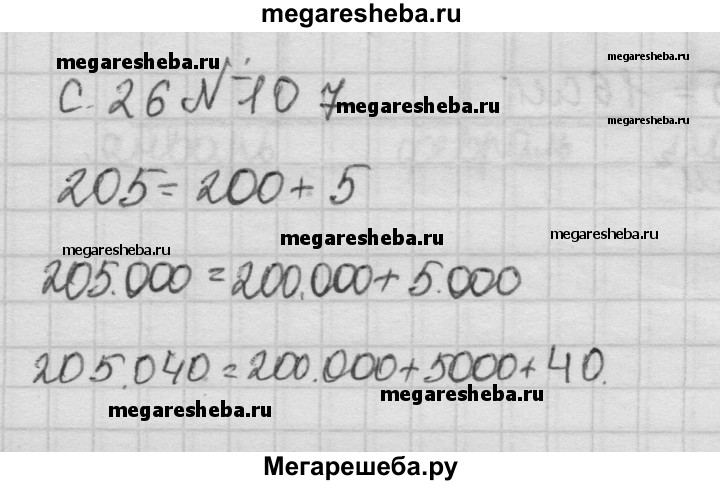 megaresheba.ru
megaresheba.ru
megaresheba.ru
С. 26 № 107
megaresheba.ru
megaresheba.ru
205 = 200 + 5
megaresheba.ru
megaresheba.ru
megaresheba.ru
205.000 = 200.000 + 5.000
205.040 = 200.000 + 5000 + 40.
megaresheba.ru
megaresheba.ru
Мегарешеба.ру